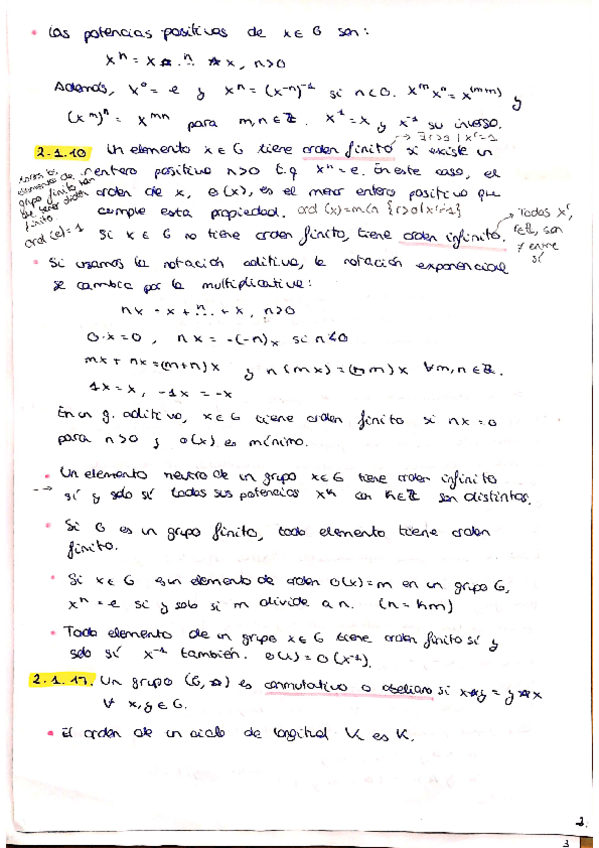 Las potencias positivas de x ∈ G son:
xⁿ = x ☆ .ⁿ. ☆ x, n>0
Además, x⁰ = e y xⁿ = (x⁻ⁿ)⁻¹ si n<0. xᵐ xⁿ = x⁽ᵐ⁺ⁿ⁾ y
(xᵐ)ⁿ = xᵐⁿ para m,n ∈ ℤ. x¹ = x y x⁻¹ su inverso.
→ ∃ r>1 | xʳ=1
2.1.10 Un elemento x ∈ G tiene orden finito si existe un
entero positivo n>0 t.q xⁿ = e. En este caso, el
orden de x, o(x), es el menor entero positivo que
cumple esta propiedad. ord(x)=min {r>0|xʳ=1}
Si x ∈ G no tiene orden finito, tiene orden infinito.
elementos de
grupo finito
finito.
ord(e)=1
→ Todos xʳ,
son
≠ entre
sí
Si usamos la notación aditiva, la notación exponencial
se cambia por la multiplicativa:
nx = x + .ⁿ. + x, n>0
0·x = 0, nx = -(-n)x si n<0
mx + nx = (m+n)x y n(mx) = (nm)x ∀m,n ∈ ℤ.
1x = x, -1x = -x
En un g. aditivo, x ∈ G tiene orden finito si nx = 0
para n>0 y o(x) es mínimo.
Un elemento neutro de un grupo x ∈ G tiene orden infinito
--> sí y solo sí todas sus potencias xᵏ con k ∈ ℤ son distintas.
Si G es un grupo finito, todo elemento tiene orden
finito.
Si x ∈ G es un elemento de orden o(x) = m en un grupo G,
xⁿ = e si y solo si m divide a n. (n = km)
Todo elemento de un grupo x ∈ G tiene orden finito sí y
solo sí x⁻¹ también. o(x) = o(x⁻¹).
2.1.17. Un grupo (G, ☆) es conmutativo o abeliano si x☆y = y☆x
∀ x,y ∈ G.
El orden de un ciclo de longitud K es K.
2.
3